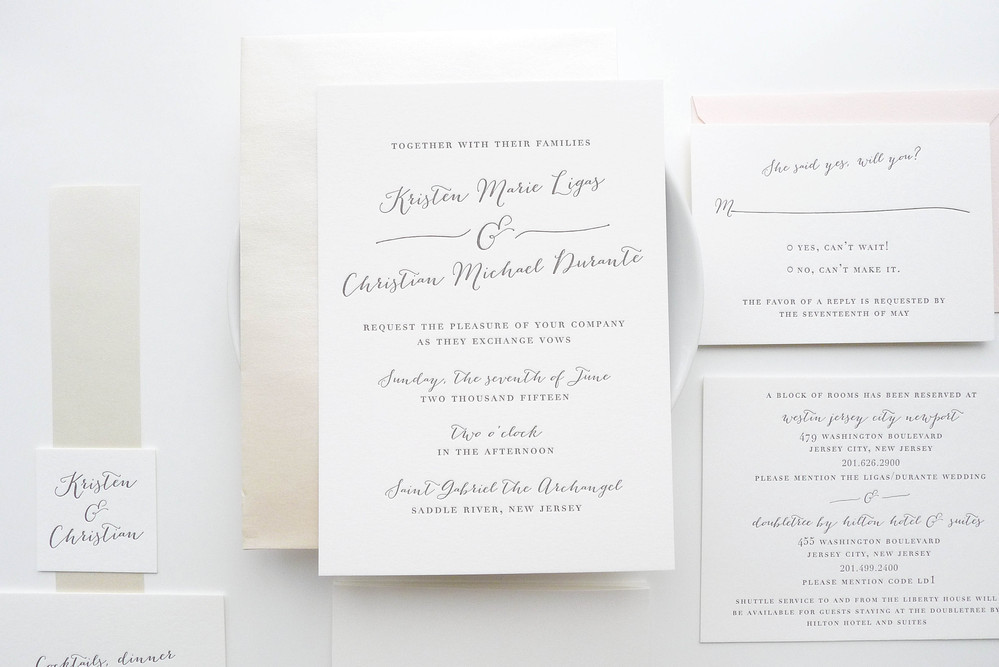 TOGETHER WITH THEIR FAMILIES
Kristen Marie Ligas
&
Christian Michael Durante
REQUEST THE PLEASURE OF YOUR COMPANY
AS THEY EXCHANGE VOWS
Sunday, the seventh of June
TWO THOUSAND FIFTEEN
Two o'clock
IN THE AFTERNOON
Saint Gabriel the Archangel
SADDLE RIVER, NEW JERSEY
Kristen
&
Christian
Cocktails, dinner
She said yes, will you?
M
YES, CAN'T WAIT!
NO, CAN'T MAKE IT.
THE FAVOR OF A REPLY IS REQUESTED BY
THE SEVENTEENTH OF MAY
A BLOCK OF ROOMS HAS BEEN RESERVED AT
westin jersey city newport
479 WASHINGTON BOULEVARD
JERSEY CITY, NEW JERSEY
201.626.2900
PLEASE MENTION THE LIGAS/DURANTE WEDDING
&
doubletree by hilton hotel & suites
455 WASHINGTON BOULEVARD
JERSEY CITY, NEW JERSEY
201.499.2400
PLEASE MENTION CODE LD1
SHUTTLE SERVICE TO AND FROM THE LIBERTY HOUSE WILL
BE AVAILABLE FOR GUESTS STAYING AT THE DOUBLETREE BY
HILTON HOTEL AND SUITES